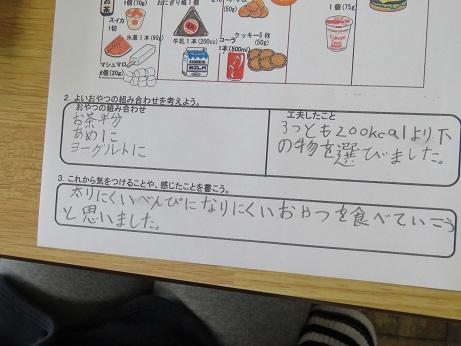 お茶
1個(70g)
おにぎり梅1個
(50g)
1個(75g)
スイカ
1切
氷菓1本(90g)
牛乳1本(200cc)
コーラ
1本(500ml)
クッキー5枚
(50g)
マシュマロ
6個(20g)
2. よいおやつの組み合わせを考えよう。
おやつの組み合わせ
お茶半分
あめ1こ
ヨーグルト1こ
工夫したこと
3つとも200kcalより下
の物を選びました。
3. これから気をつけることや、感じたことを書こう。
太りにくいべんぴになりにくいおやつを食べていこう
と思いました。